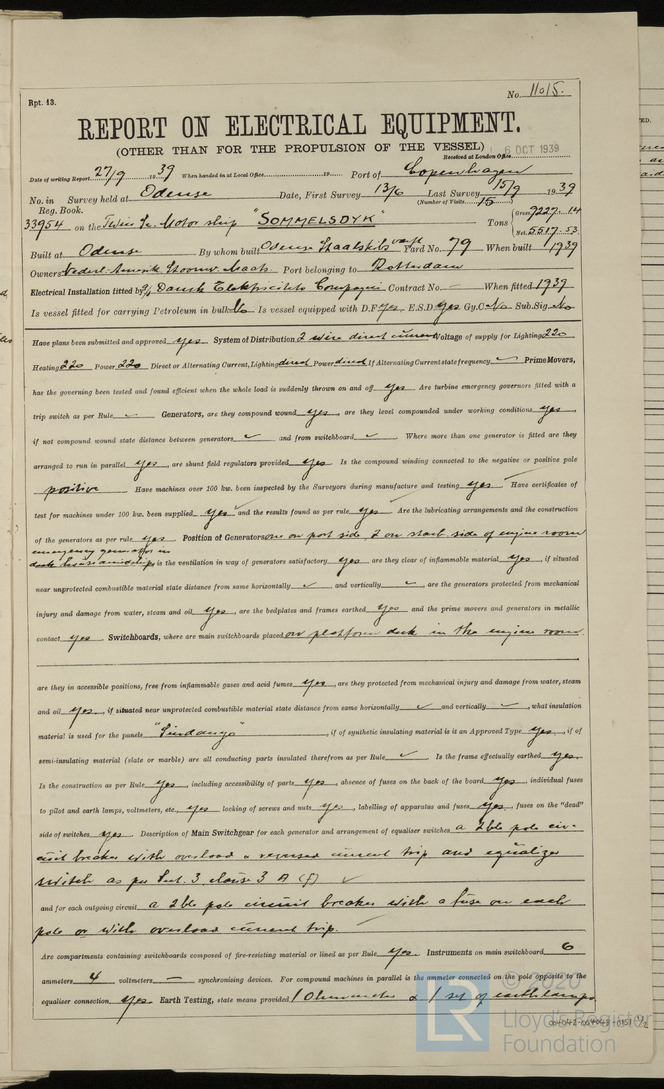 Rpt. 13.
No. 11015.
REPORT ON ELECTRICAL EQUIPMENT.
(OTHER THAN FOR THE PROPULSION OF THE VESSEL)
6 OCT 1939
Received at London Office
Date of writing Report 27/9 1939 When handed in at Local Office 19 Port of Copenhagen
No. in Reg. Book. Survey held at Odense Date, First Survey 13/6 Last Survey 15/9 1939
(Number of Visits 15)
33954 on the Twin Sc. Motor ship "SOMMELSDYK" Tons Gross 9227.14 Net 5517.53
Built at Odense By whom built Odense Staalskibsværft Yard No. 79 When built 1939
Owners Nederl. Amerik. Stoomv. Maats Port belonging to Rotterdam
Electrical Installation fitted by Dansk Elektricitets Compagni Contract No. - When fitted 1939
Is vessel fitted for carrying Petroleum in bulk No Is vessel equipped with D.F. Yes E.S.D. Yes Gy.C. No Sub.Sig. No
Have plans been submitted and approved yes System of Distribution 2 wire direct current Voltage of supply for Lighting 220
Heating 220 Power 220 Direct or Alternating Current, Lighting direct Power direct If Alternating Current state frequency ✓ Prime Movers,
has the governing been tested and found efficient when the whole load is suddenly thrown on and off yes Are turbine emergency governors fitted with a
trip switch as per Rule - Generators, are they compound wound yes, are they level compounded under working conditions yes,
if not compound wound state distance between generators ✓ and from switchboard ✓ Where more than one generator is fitted are they
arranged to run in parallel yes, are shunt field regulators provided yes Is the compound winding connected to the negative or positive pole
positive Have machines over 100 kw. been inspected by the Surveyors during manufacture and testing yes Have certificates of
test for machines under 100 kw. been supplied yes and the results found as per rule yes Are the lubricating arrangements and the construction
of the generators as per rule yes Position of Generators one on port side, 2 on starb. side of engine room
emergency generator in
deck house amidships is the ventilation in way of generators satisfactory yes are they clear of inflammable material yes, if situated
near unprotected combustible material state distance from same horizontally ✓ and vertically ✓, are the generators protected from mechanical
injury and damage from water, steam and oil yes, are the bedplates and frames earthed yes and the prime movers and generators in metallic
contact yes Switchboards, where are main switchboards placed on platform deck in the engine room
are they in accessible positions, free from inflammable gases and acid fumes yes, are they protected from mechanical injury and damage from water, steam
and oil yes, if situated near unprotected combustible material state distance from same horizontally ✓ and vertically ✓, what insulation
material is used for the panels "Sindanyo", if of synthetic insulating material is it an Approved Type yes, if of
semi-insulating material (slate or marble) are all conducting parts insulated therefrom as per Rule ✓ Is the frame effectually earthed yes
Is the construction as per Rule yes, including accessibility of parts yes, absence of fuses on the back of the board yes, individual fuses
to pilot and earth lamps, voltmeters, etc. yes locking of screws and nuts yes, labelling of apparatus and fuses yes, fuses on the "dead"
side of switches yes Description of Main Switchgear for each generator and arrangement of equaliser switches a 2ble pole cir-
cuit breaker with overload & reversed current trip and equalizer
switch as per Sect. 3 clause 3 A (f) ✓
and for each outgoing circuit a 2ble pole circuit breaker with a fuse on each
pole or with overload current trip.
Are compartments containing switchboards composed of fire-resisting material or lined as per Rule yes. Instruments on main switchboard 6
ammeters 4 voltmeters - synchronising devices. For compound machines in parallel is the ammeter connected on the pole opposite to the
equaliser connection yes Earth Testing, state means provided 1 Ohmmeter & 1 set of earth lamps
© 2020
LR
Lloyd's Register
Foundation